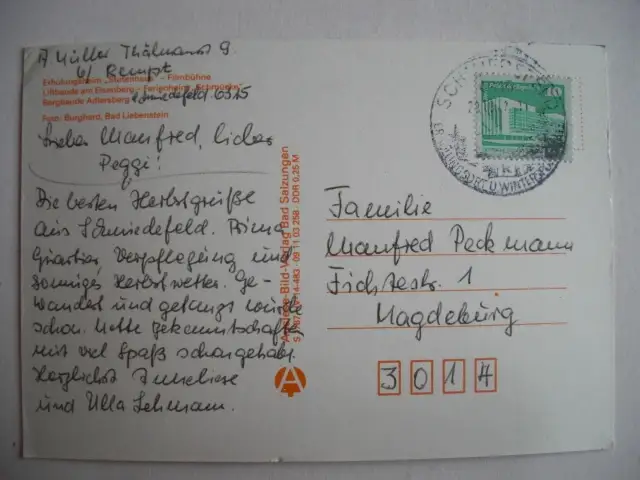 A Müller Thälmannst 9
b/ Rempt
Schmiedefeld 6315
Erholungsheim · Filmbühne
Liftbaude am Eisenberg · Ferienheim
Bergbaude Adlersberg
Foto: Burghard, Bad Liebenstein
Lieber Manfred, liebe
Peggi!
Die besten Herbstgrüße
aus Schmiedefeld. Prima
Quartier, Verpflegung und
sonniges Herbstwetter. Ge-
wandert und getanzt wurde
schon. Nette Bekanntschaften
mit viel Spaß schon gehabt.
Herzlichst Anneliese
und Ulla Lehmann.
Bild-Verlag Bad Salzungen
09 11 03 258 · DDR 0,25 M
A
SCHMIEDEFELD
ERHOLUNGSORT U. WINTERSPORT
10
Familie
Manfred Peckmann
Fichtestr. 1
Magdeburg
3014